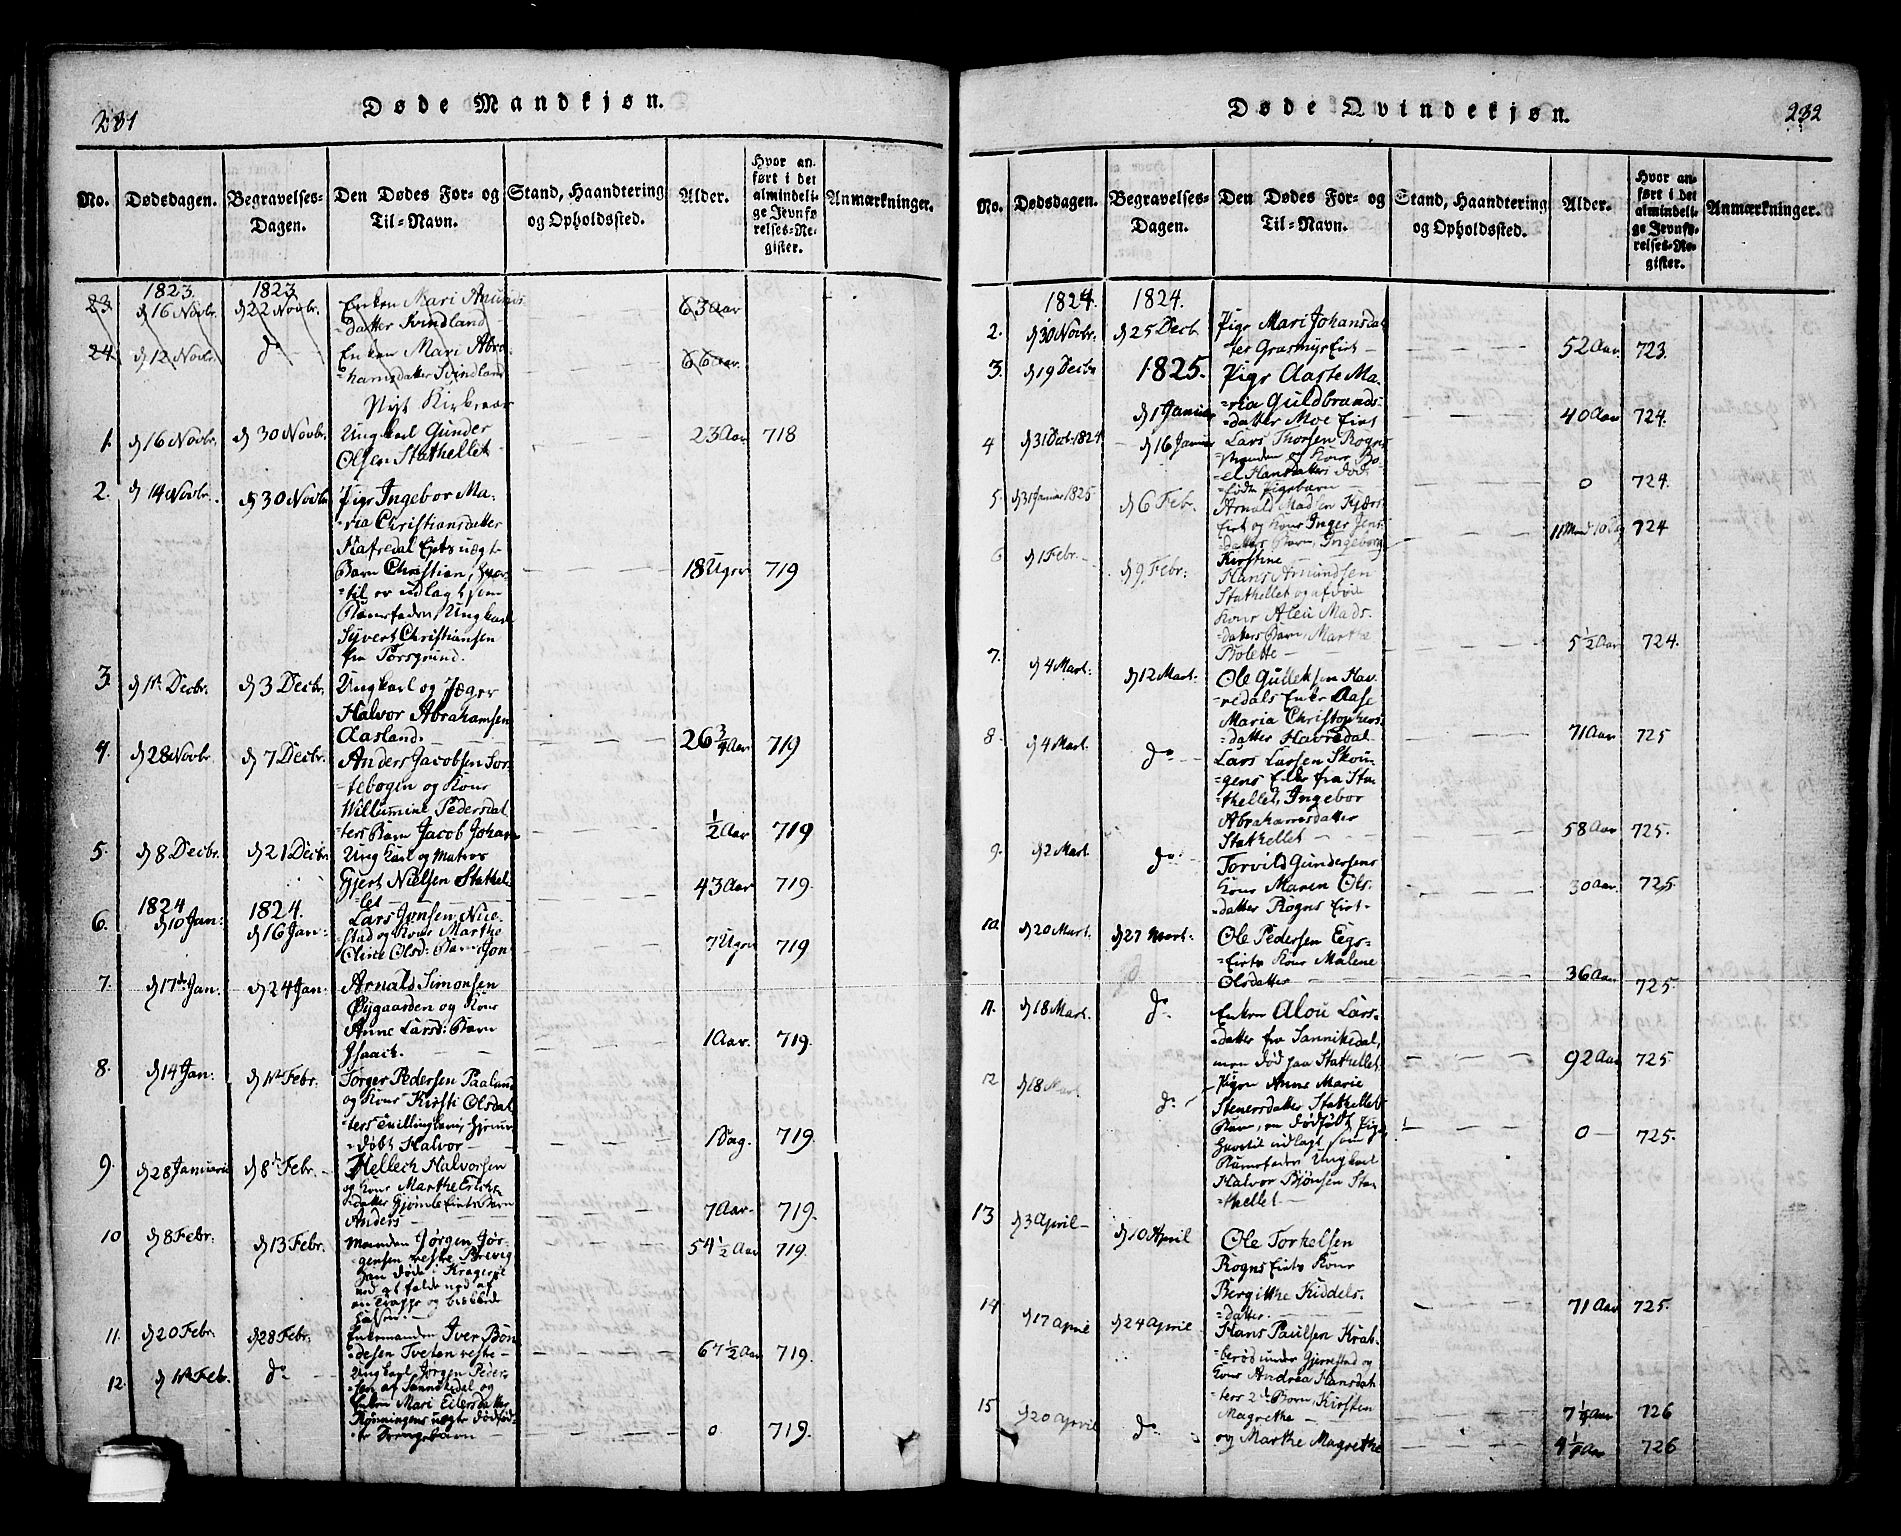 231
Døde Mandkjøn.
No.
Dødsdagen.
Begravelses-
Dagen.
Den Dødes For- og
Til-Navn.
Stand, Haandtering
og Opholdssted.
Alder.
Hvor an-
ført i det
almindeli-
ge Jevnfø
relses-Re-
gister.
Anmærkninger.
1823. 1823
23. d 16 Novbr. d 22 Novbr. Enken Mari Amunds 63 Aar
-datter Svindland
24. d 12 Novbr. do Enken Mari Abra- 66 Aar
-hamsdatter Svindland
Nyt Kirkeaar
1. d 16 Novbr. d 30 Novbr. Ungkarl Gunder 23 Aar 718
Olsen Stathellet
2. d 14 Novbr. d 30 Novbr. Pige Ingebor Ma-
-ria Christiansdatter
Hafredal Eiets uægt
Barn Christian, hvor- 18 Uger 719
-til er udlagt som
Barnefader, Ungkarl
Syvert Christiansen
fra Porsgrund.
3. d 1ste Decbr. d 3 Decbr. Ungkarl og Jæger
Halvor Abrahamsen
Aasland. 26 3/4 Aar 719
4. d 28 Novbr. d 7 Decbr. Anders Jacobsen Tor-
tebogen og Kone
Willumine Pedersdat
-ters Barn Jacob Johan 1/2 Aar 719
5. d 8 Decbr. d 21 Decbr. Ungkarl og Matros
Gjert Nielsen Stathel- 43 Aar 719.
-let
1824 1824.
6. d 10 Jan: d 16 Jan: Lars Jonsen
-stad og Kone Marthe
Olsd: Barn Jon 7 Uger 719
7. d 17de Jan: d 24 Jan: Arnald Simonsen
Øygaarden og Kone
Anne Larsd: Barn 1 Aar. 719.
Isaach.
8. d 14 Jan: d 1ste Febr. Torger Pedersen Paaland
og Kone Kirsti Olsdat
-ters Tvillingbarn, hjemme
-døbt Halvor 1 Dag. 719.
9. d 28 Januarii d 8de Febr. Hellech Halvorsen
og Kone Marthe Erichs
-datter Gjømle Eiets Barn
Anders 7 Aar. 719.
10 d 8 Febr. d 13 Febr. Manden Jørgen Jør- 54 1/2 Aar 719.
gensen Brevig
han døde i Kragerøe
ved at falde ned af
en Trappe og
11. d 20 Febr. d 28 Febr. Enkemanden Iver Bon
-desen Tveten 67 1/2 Aar 719.
12. d 1ste Febr. do Ungkarl Jørgen Peder-
-sen af Sannikedal og
Enken Mari Eilersdatter
Rønningens uægte dødfød-
-te Drengebarn 0 719.
232
Døde Qvindekjøn.
No.
Dødsdagen.
Begravelses-
Dagen.
Den Dødes For- og
Til-Navn.
Stand, Haandtering
og Opholdssted.
Alder.
Hvor an-
ført i det
almindeli-
ge Jevnfø-
relses-Re-
gister.
Anmærkninger.
1824. 1824.
2. d 30 Novbr. d 25 Decb. Pige Mari Johansdat
ter Grasmyr Eiet 52 Aar 723.
3. d 19 Decbr 1825. Pige Aaste Ma-
-ria Guldbrands-
d 1 Januar -datter Moe Eiet 40 Aar 724.
4 d 31 Decb. 1824 d 16 Januar Lars Thorsen Rogns
Manden og Kone Bo-
el Hansdatters død-
fødte Pigebarn 0 724.
5. d 31 Januar 1825 d 6 Feb. Arnold Madsen Kjærs-
Eiet og Kone Inger Jens-
-datters Barn, Ingeborg 11 Mnd 10 Dg 724
Kirstine
6 d 1 Febr. d 9 Febr: Hans Amundsen
Stathellet og afdøde
Kone Aleu Mads-
-datters Barn, Marthe 5 1/2 Aar 724.
Bolette
7. d 4 Mart. d 12 Mart. Ole Gulleksen Hav-
-redals Enke Aase
Maria Christophers-
-datter Havredal 71 Aar 725
8. d 4 Mart. do Lars Larsen Skou-
gens Enke fra Sta-
-thellet, Ingebor
Abrahamsdatter 58 Aar 725.
Stathellet
9. d 2 Mart. do Torvild Gundersens
Kone Maren Ols- 30 Aar. 725.
-datter Rogns Eiet
10. d 20 Mart. d 27 Mart: Ole Pedersen Eegs-
-Eiets Kone Malene
Olsdatter 36 Aar 725.
11. d 18 Mart. do Enken Alou Lars-
-datter fra Sannikedal,
men død paa Stathellet 92 Aar 725
12 d 18 Mart. do Pigen Anne Marie
Stenersdatter Stathellets
Barn, en dødfødt Pige 0 725.
hvortil udlagt som
Barnefader Ungkarl
Halvor Bjønsen Sta-
-thellet
13 d 3 April d 10 April Ole Torkelsen
Rogns Eiets Kone
Bergitthe Kiddels-
-datter. 71 Aar 725.
14. d 17 April d 24 April Hans Paulsen Krab-
berød under Gjerrestad og
Kone Andrea Hansdat
-ters 2de Børn, Kirsten
Magrethe 7 1/2 Aar 726
15 d 20 April do og Marthe Magrethe 4 1/2 Aar 726